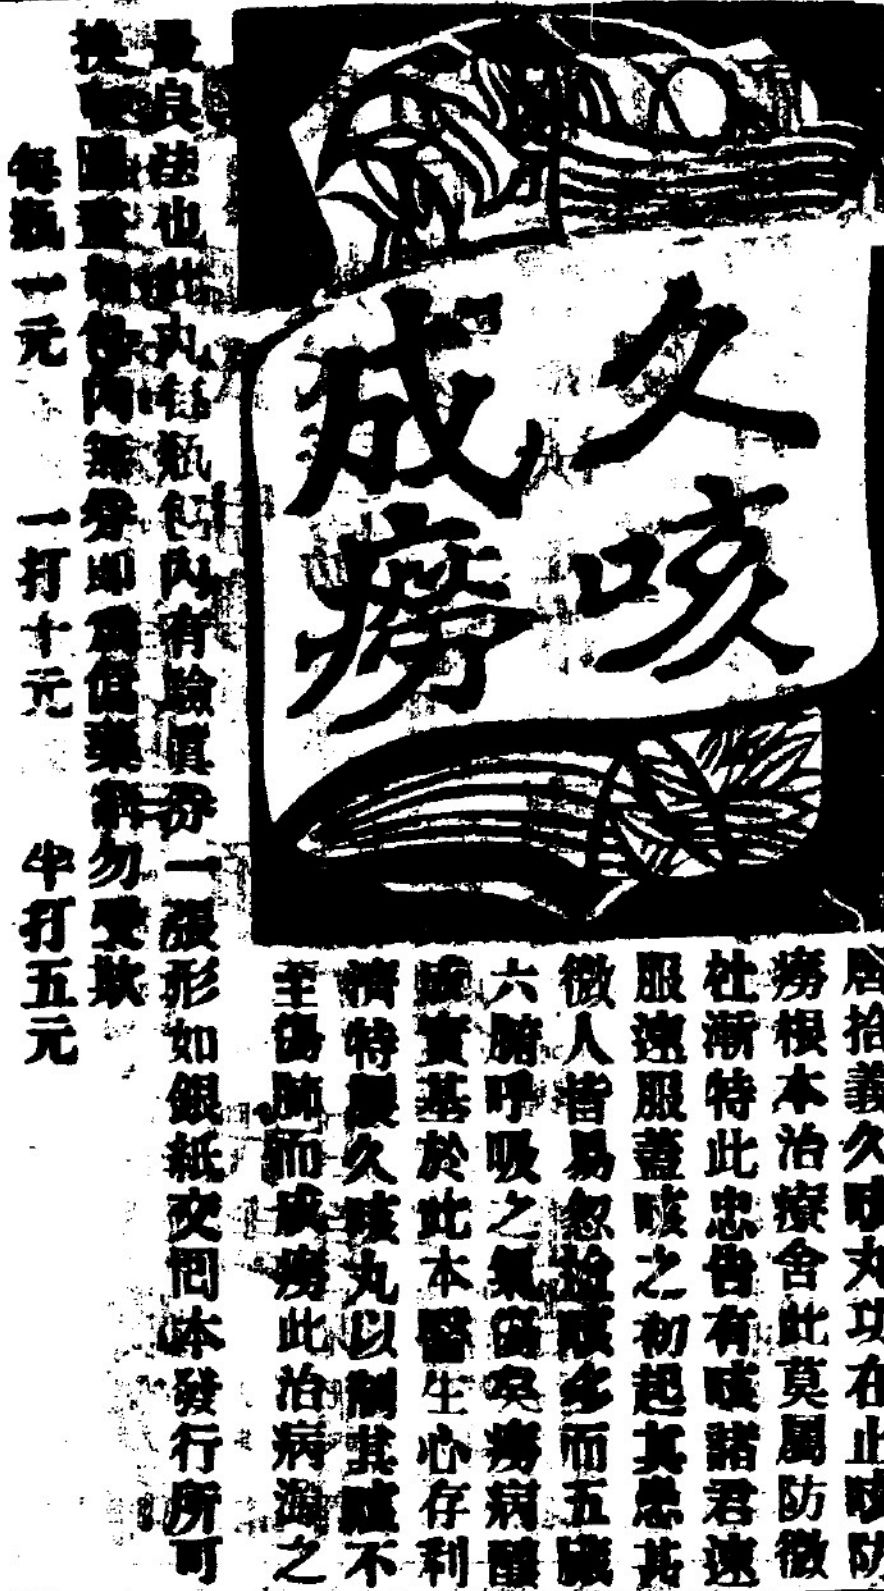 久咳
成癆
唐拾義久咳丸功在止咳防
癆根本治療舍此莫屬防微
杜漸特此忠告有咳諸君速
服速服蓋咳之初起其患甚
微人皆易忽詎咳多而五臟
六腑呼吸之氣傷矣癆病釀
成實基於此本醫生心存利
濟特製久咳丸以制其咳不
至傷肺而成癆此治病淵之
最良法也此丸每瓶包內有驗眞券一張形如銀紙交回本發行所可
換 如包內無券即爲僞藥請勿受欺
每瓶一元 一打十元 半打五元